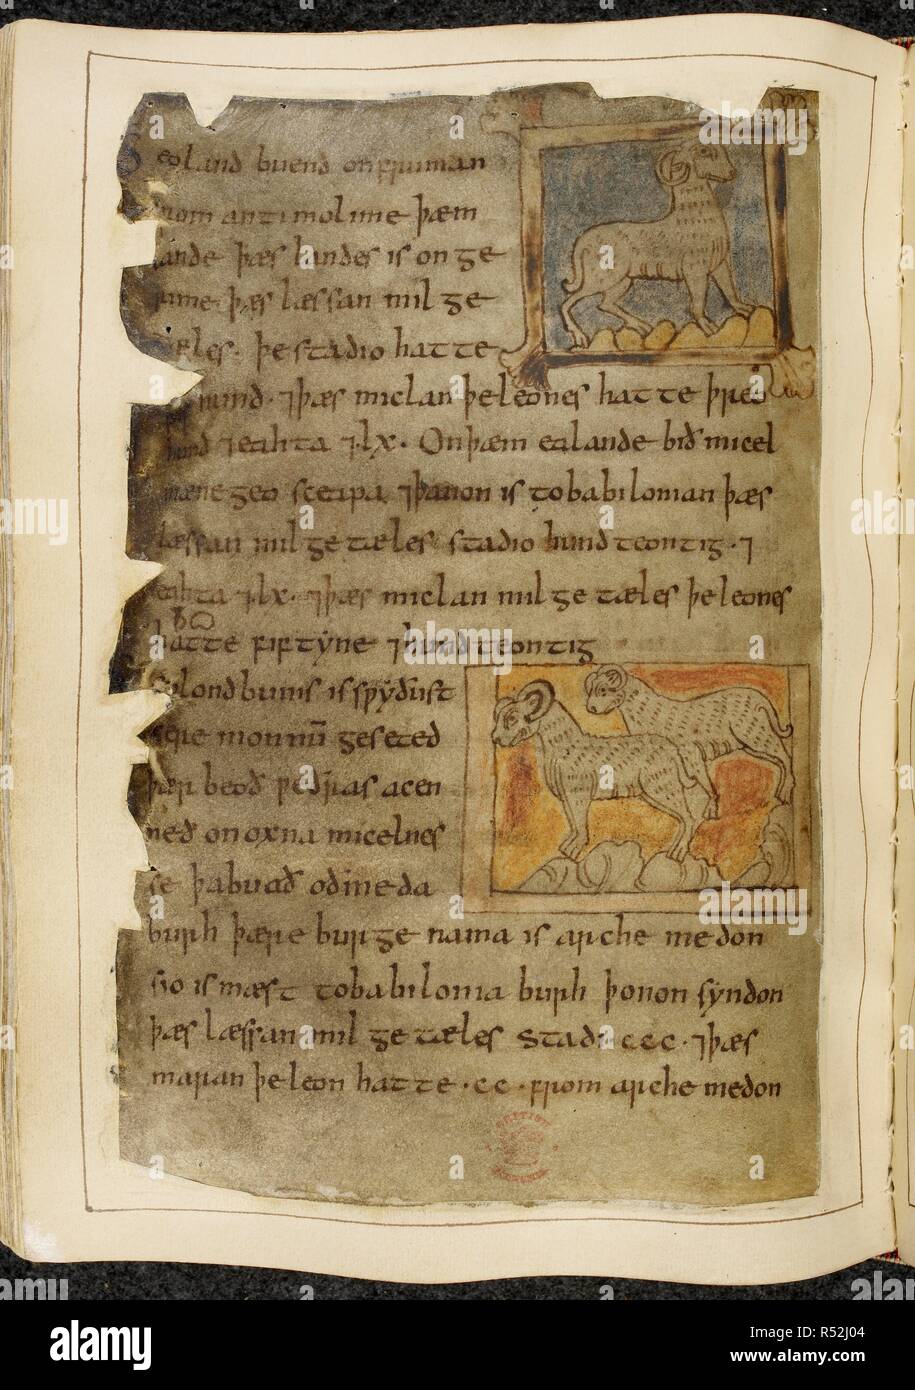 eoland buend on fruman
from antimolime þæm
lande þæs landes is on ge
rime þæs læssan mil ge
tæles. þe stadio hatte
fif hund. ⁊ þæs miclan þe leones hatte þreo
hund ⁊ eahta ⁊ .lx. On þæm ealande bið micel
mænegeo sceapa ⁊ þanon is to babilonian þæs
læssan mil getæles stadio hundteontig. ⁊
eahta ⁊ .lx. ⁊ þæs miclan mil getæles þe leones
hatte fiftyne ⁊ hundteontig
lond bunis is spyðust
monnū geseted
þær beoð peðras acen
ned on oxna micelnes
se þa buað oð meda
burh þære burge nama is archemedon
sio is mæst to babilonia burh þonon syndon
þæs læssan mil getæles stadi ccc. ⁊ þæs
maran þe leon hatte .cc. from archemedon
BRITISH MUSEUM
alamy
Image ID: R52J04
www.alamy.com